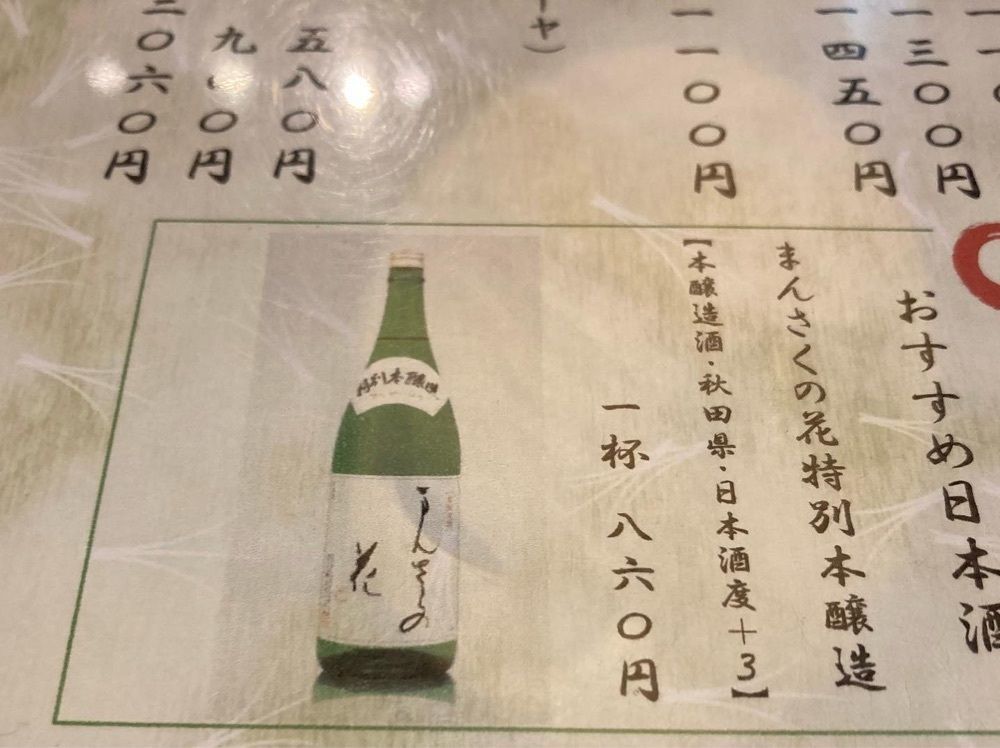 一三〇〇円
一四五〇円
一一〇〇円
五八〇円
九〇〇円
二〇六〇円
おすすめ日本酒
まんさくの花特別本醸造
【本醸造酒・秋田県・日本酒度＋3】
一杯 八六〇円
特別本醸造
まんさくの
花